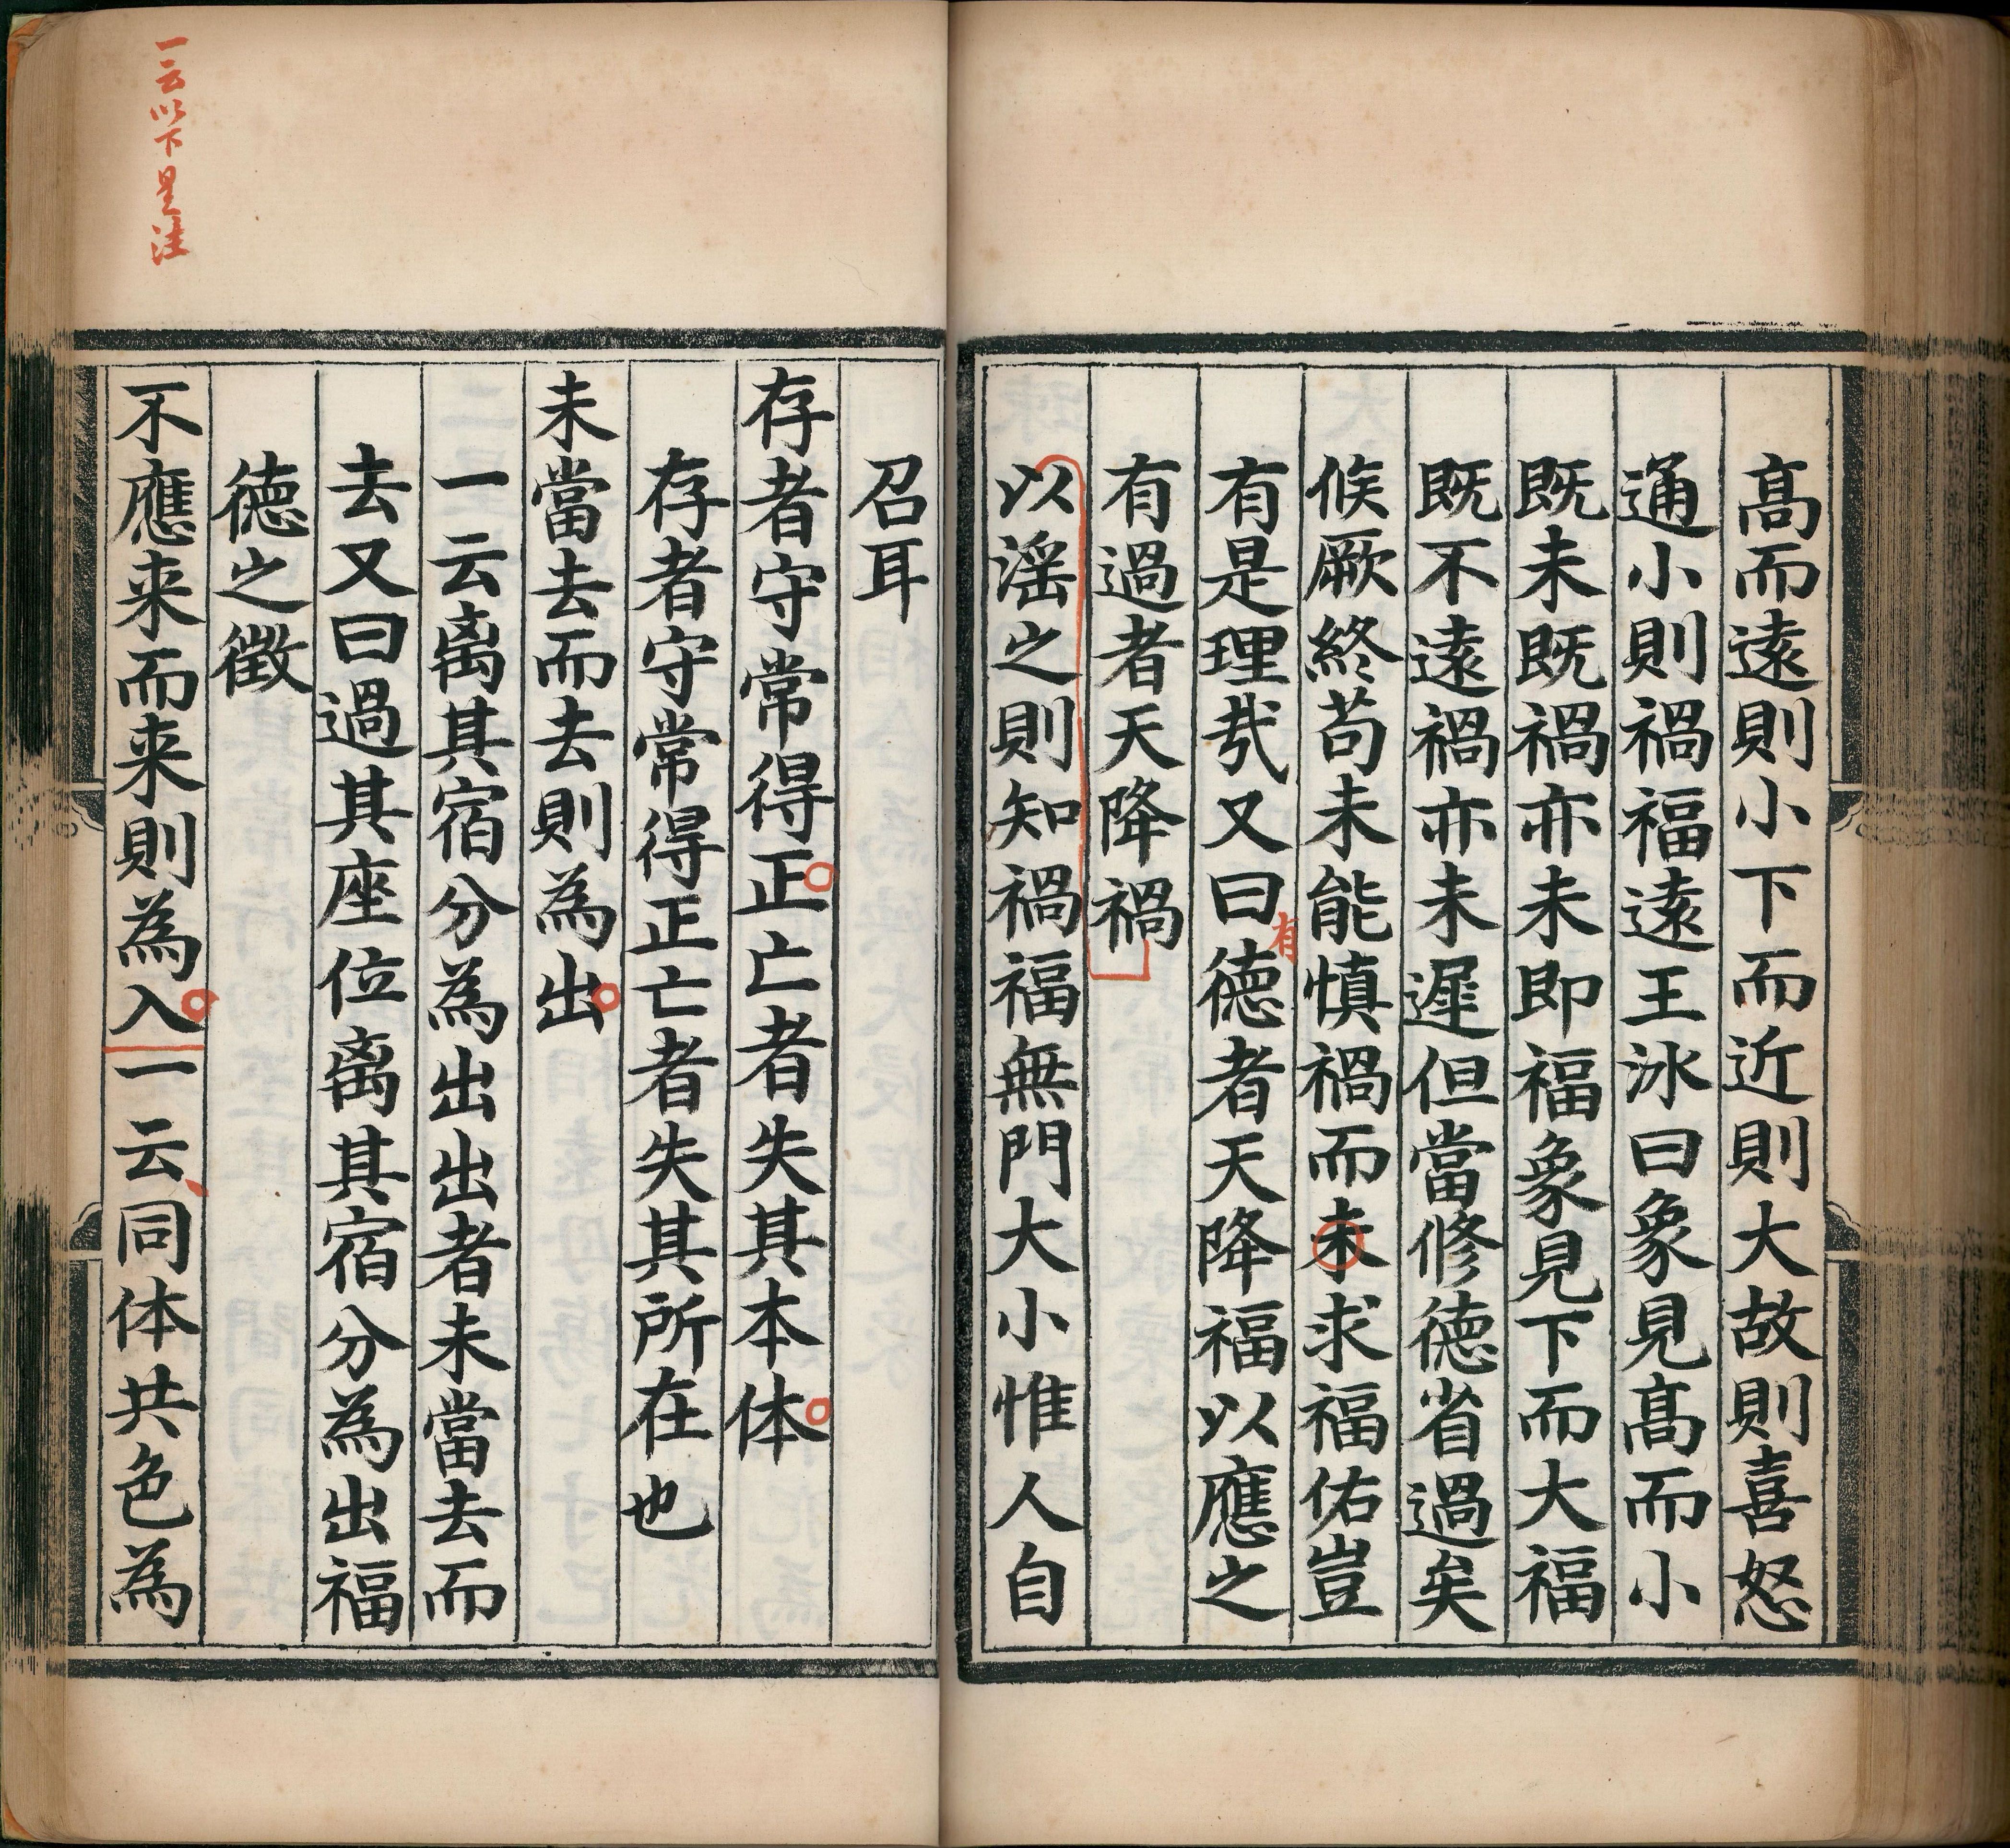 高而遠則小下而近則大故則喜怒
通小則禍福遠王泳曰象見高而小
既未既禍亦未即福象見下而大福
既不遠禍亦未遲但當修德省過矣
候厥終苟未能慎禍而未求福佑豈
有是理㢤又曰德者天降福以應之
有
有過者天降禍
以滛之則知禍福無門大小惟人自
召耳
存者守常得正亡者失其本体
存者守常得正亡者失其所在也
未當去而去則為出
一云离其宿分為出出者未當去而
去又曰過其座位离其宿分為出福
德之徵
不應来而来則為入一云同体共色為
一云以下是注